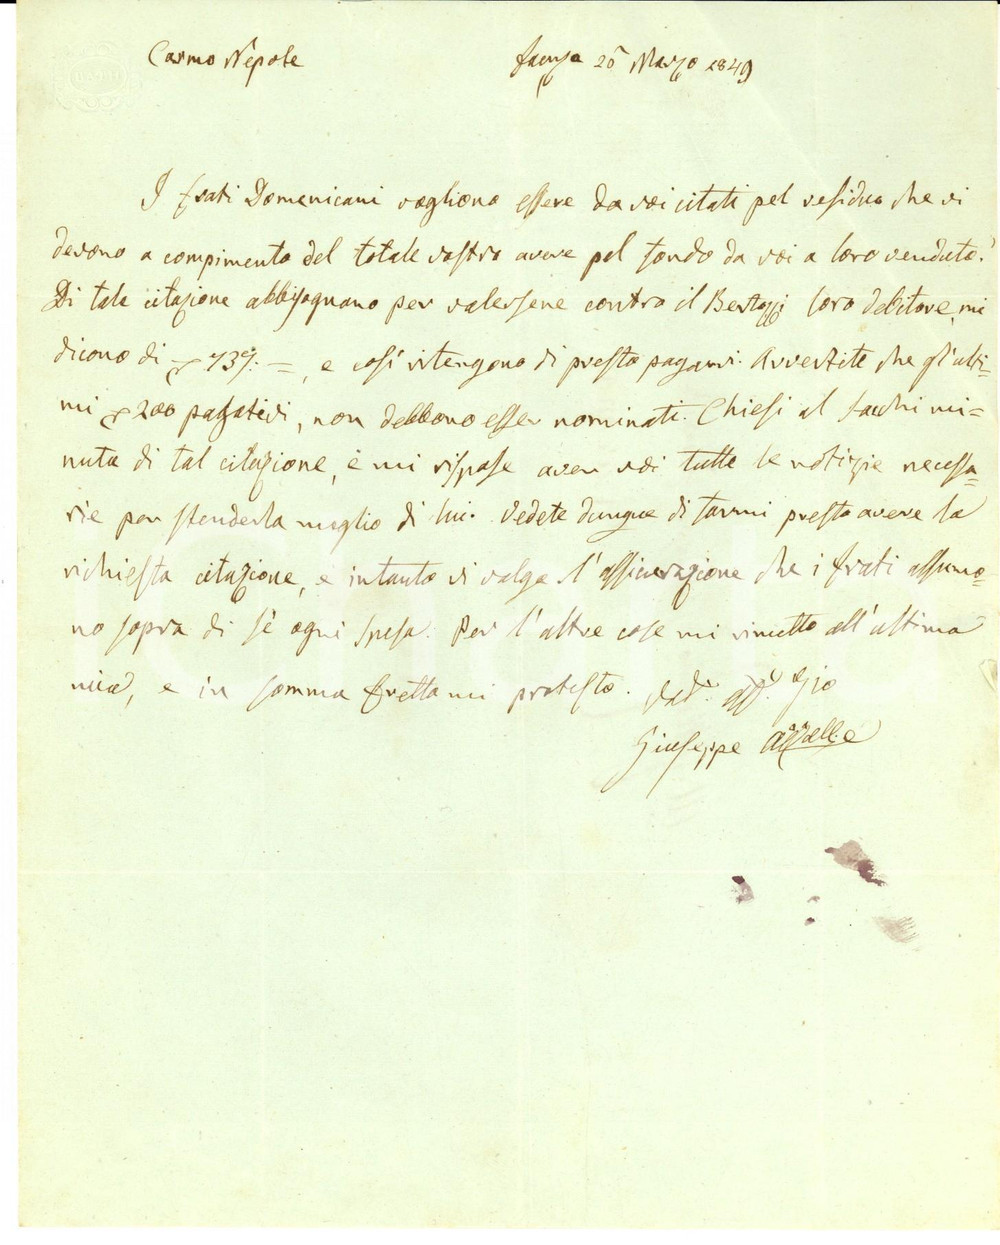 Carmo Nepote
Faenza 20 Marzo 1849
I frati Domenicani vogliono essere da voi citati pel residuo che vi
devono a compimento del totale vostro avere pel fondo da voi a loro venduto.
Di tale citazione abbisognano per valersene contro il Bertozzi loro debitore, mi
dicono di 73 =, e così ritengono di presto pagarvi. Avvertite che gl'ulti=
mi 200 pagativi, non debbono esser nominati. Chiesi al Sacchi mi=
nuta di tal citazione, e mi rispose aver voi tutte le notizie necessa=
rie per stenderla meglio di lui. Vedete dunque di farmi presto avere la
richiesta citazione, e intanto vi valga l'assicurazione che i frati assumo=
no sopra di sè ogni spesa. Per l'altre cose mi rimetto all'ultima
mia, e in somma fretta mi protesto. aff. Zio
Giuseppe